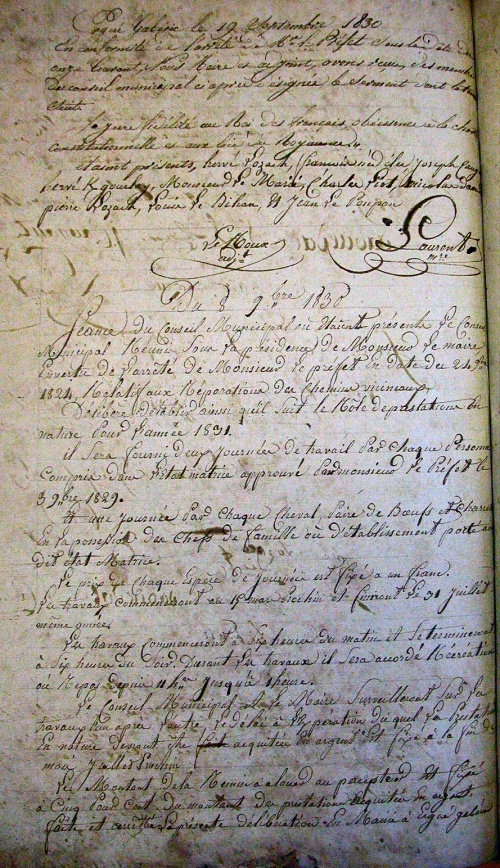 Ergué Gabéric le 19 Septembre 1830
En conformité de l'arrêté de Mr le Préfet sous la date du
onze Courant, Nous Maire et adjoint, avons reçu des membres
du conseil municipal ci après désignés le Serment dont la teneur
Suit.
Je jure fidélité au Roi des français, obéissance à la charte
Constitutionnelle et aux lois du Royaume.
étaient présents, hervé Lozach, françois Joseph
hervé Monsieur le Marié, Charles Nicolas
pierre Lozach, Louis Le Bihan, et Jean Le Poupon
Le Noux
adjt
Laurent
mre
Du 8 9bre 1830
Séance du Conseil Municipal où étaient présents le Conseil
Municipal Réunie Sous la présidence de Monsieur le maire
Envertu de l'arrêté de Monsieur le préfet en date du 24 9bre
1824, Relatif aux Réparations des Chemins vicinaux,
Délibère d'établir ainsi qu'il Suit le Rôle de prestations En
nature pour l'année 1831.
il Sera fourni deux journées de travail par chaque Personne
Comprise dans l'état matrice approuvé par monsieur le Préfet le
3 9bre 1829.
Et une journée par chaque Cheval, Paire de Bœufs et Charrette
En la possession des Chefs de famille où d'établissement porté au
dit état Matrice.
Le prix de Chaque Espèce de journée est fixé a un franc.
Les travaux commenceront au 15 mars prochin et finiront le 31 Juillet
même année.
Les travaux commenceront à Six heures du matin et Se termineront
à Six heures du Soir. Durant les travaux il Sera accordé Récréation
où Repos depuis 11 hres jusqu'à 1 heure.
Le Conseil Municipal et le Maire Surveilleront Sur les
travaux l'un après l'autre le délai à l'Expiration duquel la Prestation
En nature devront être acquitée En argent Est fixé a la fin du
mois Juillet Prochin.
Le Montant de la Remise a allouer au percepteur Est fixé
à Cinq pour Cent du montant des prestations acquitées En argent.
faite et arrêtée la présente délibération En Mairie à Ergué gabéric